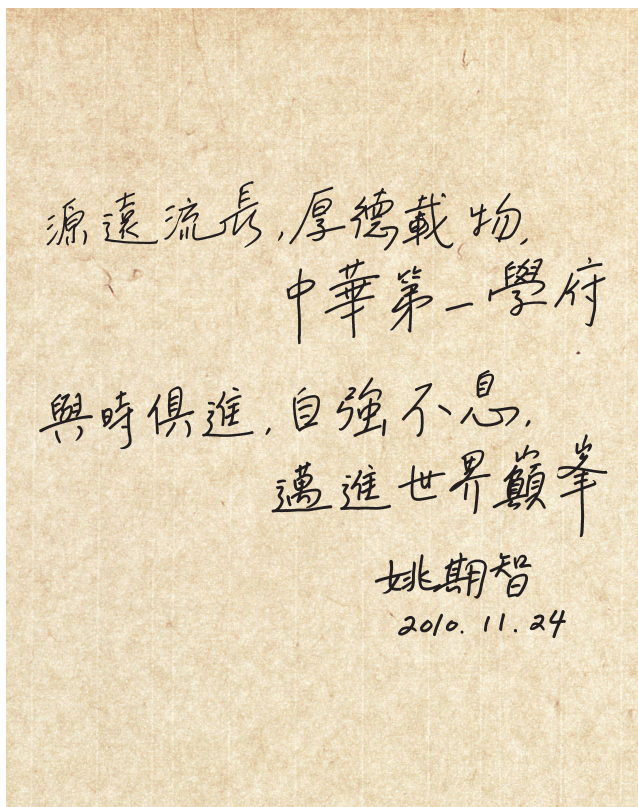 源遠流長,厚德載物,
中華第一學府
與時俱進,自強不息,
邁進世界巔峯
姚期智
2010.11.24